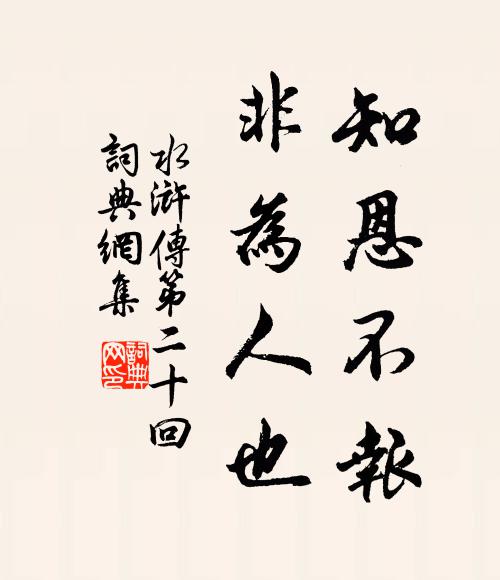 知恩不報
非為人也
水滸傳第二十回
詞典網集
詞典
网印